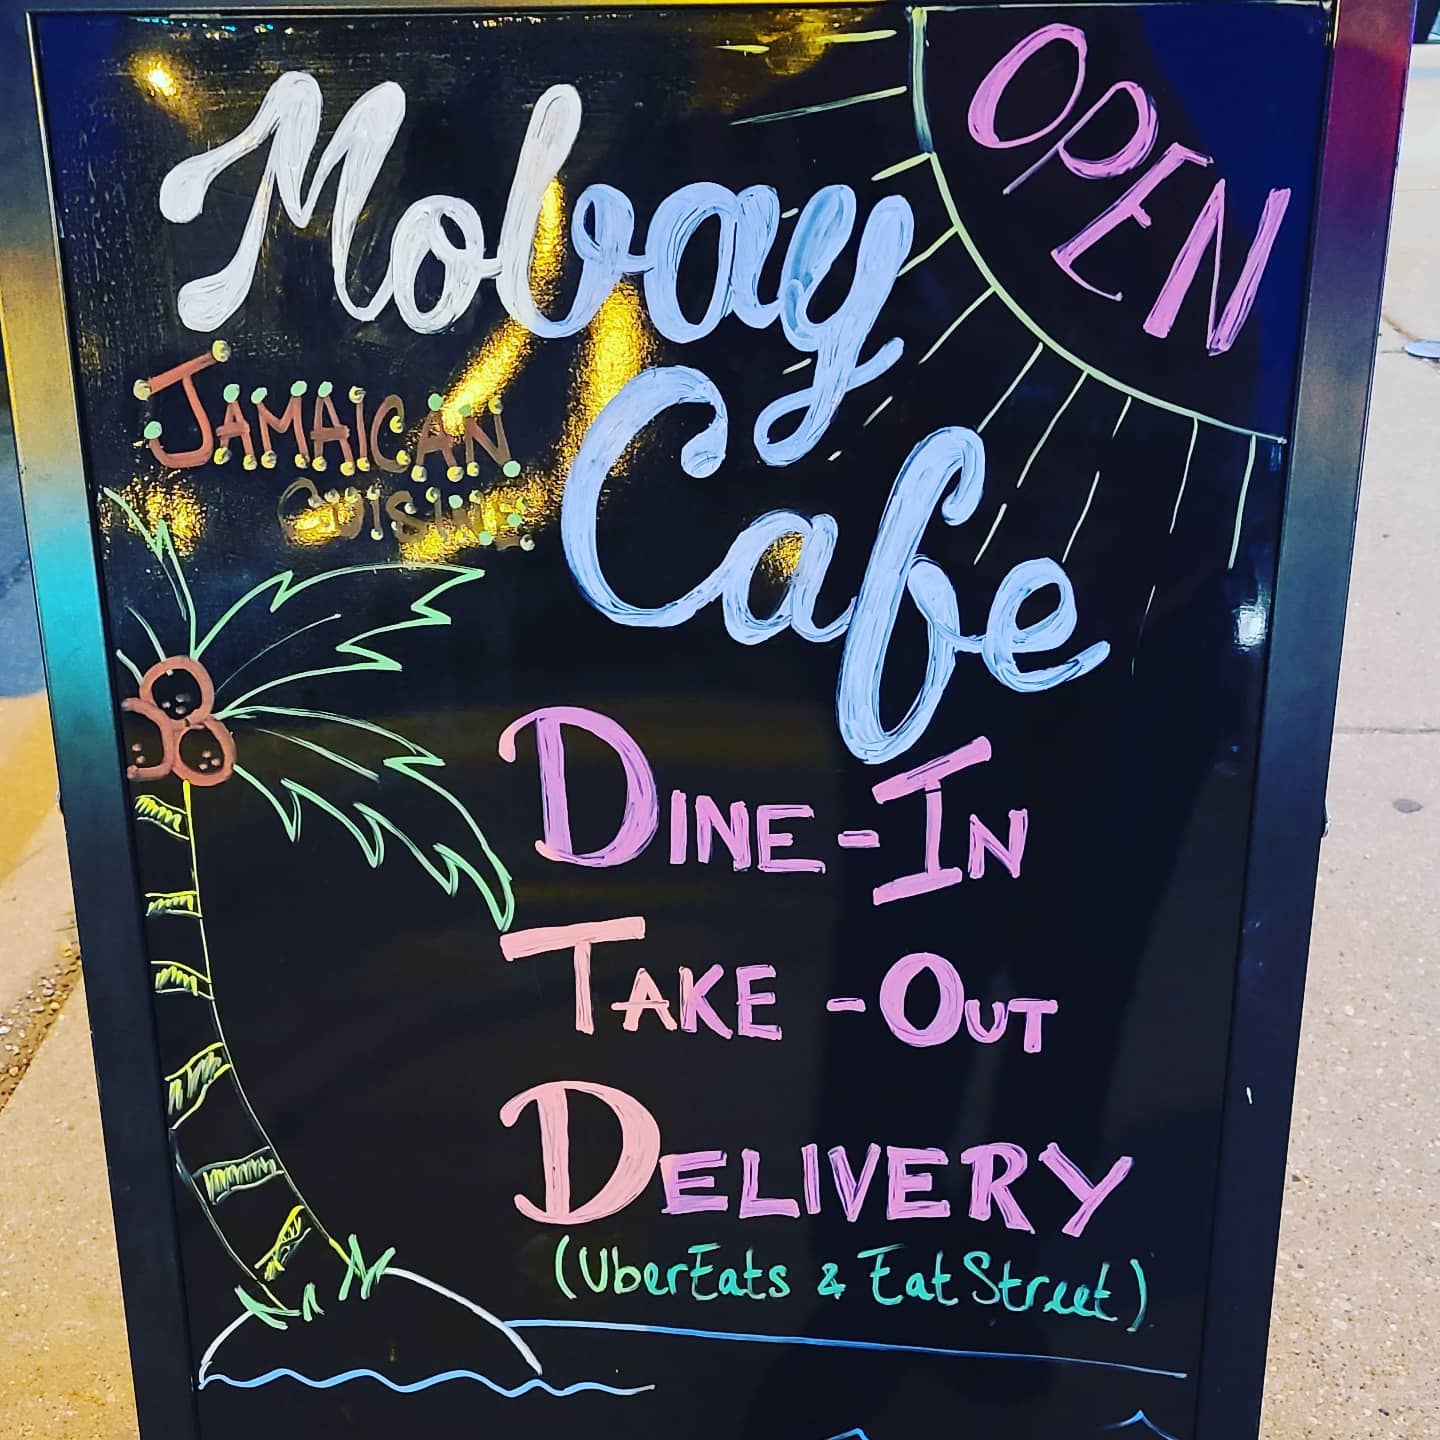 OPEN
Mobay
Cafe
JAMAICAN
CUISINE
DINE-IN
TAKE-OUT
DELIVERY
(UberEats & EatStreet)